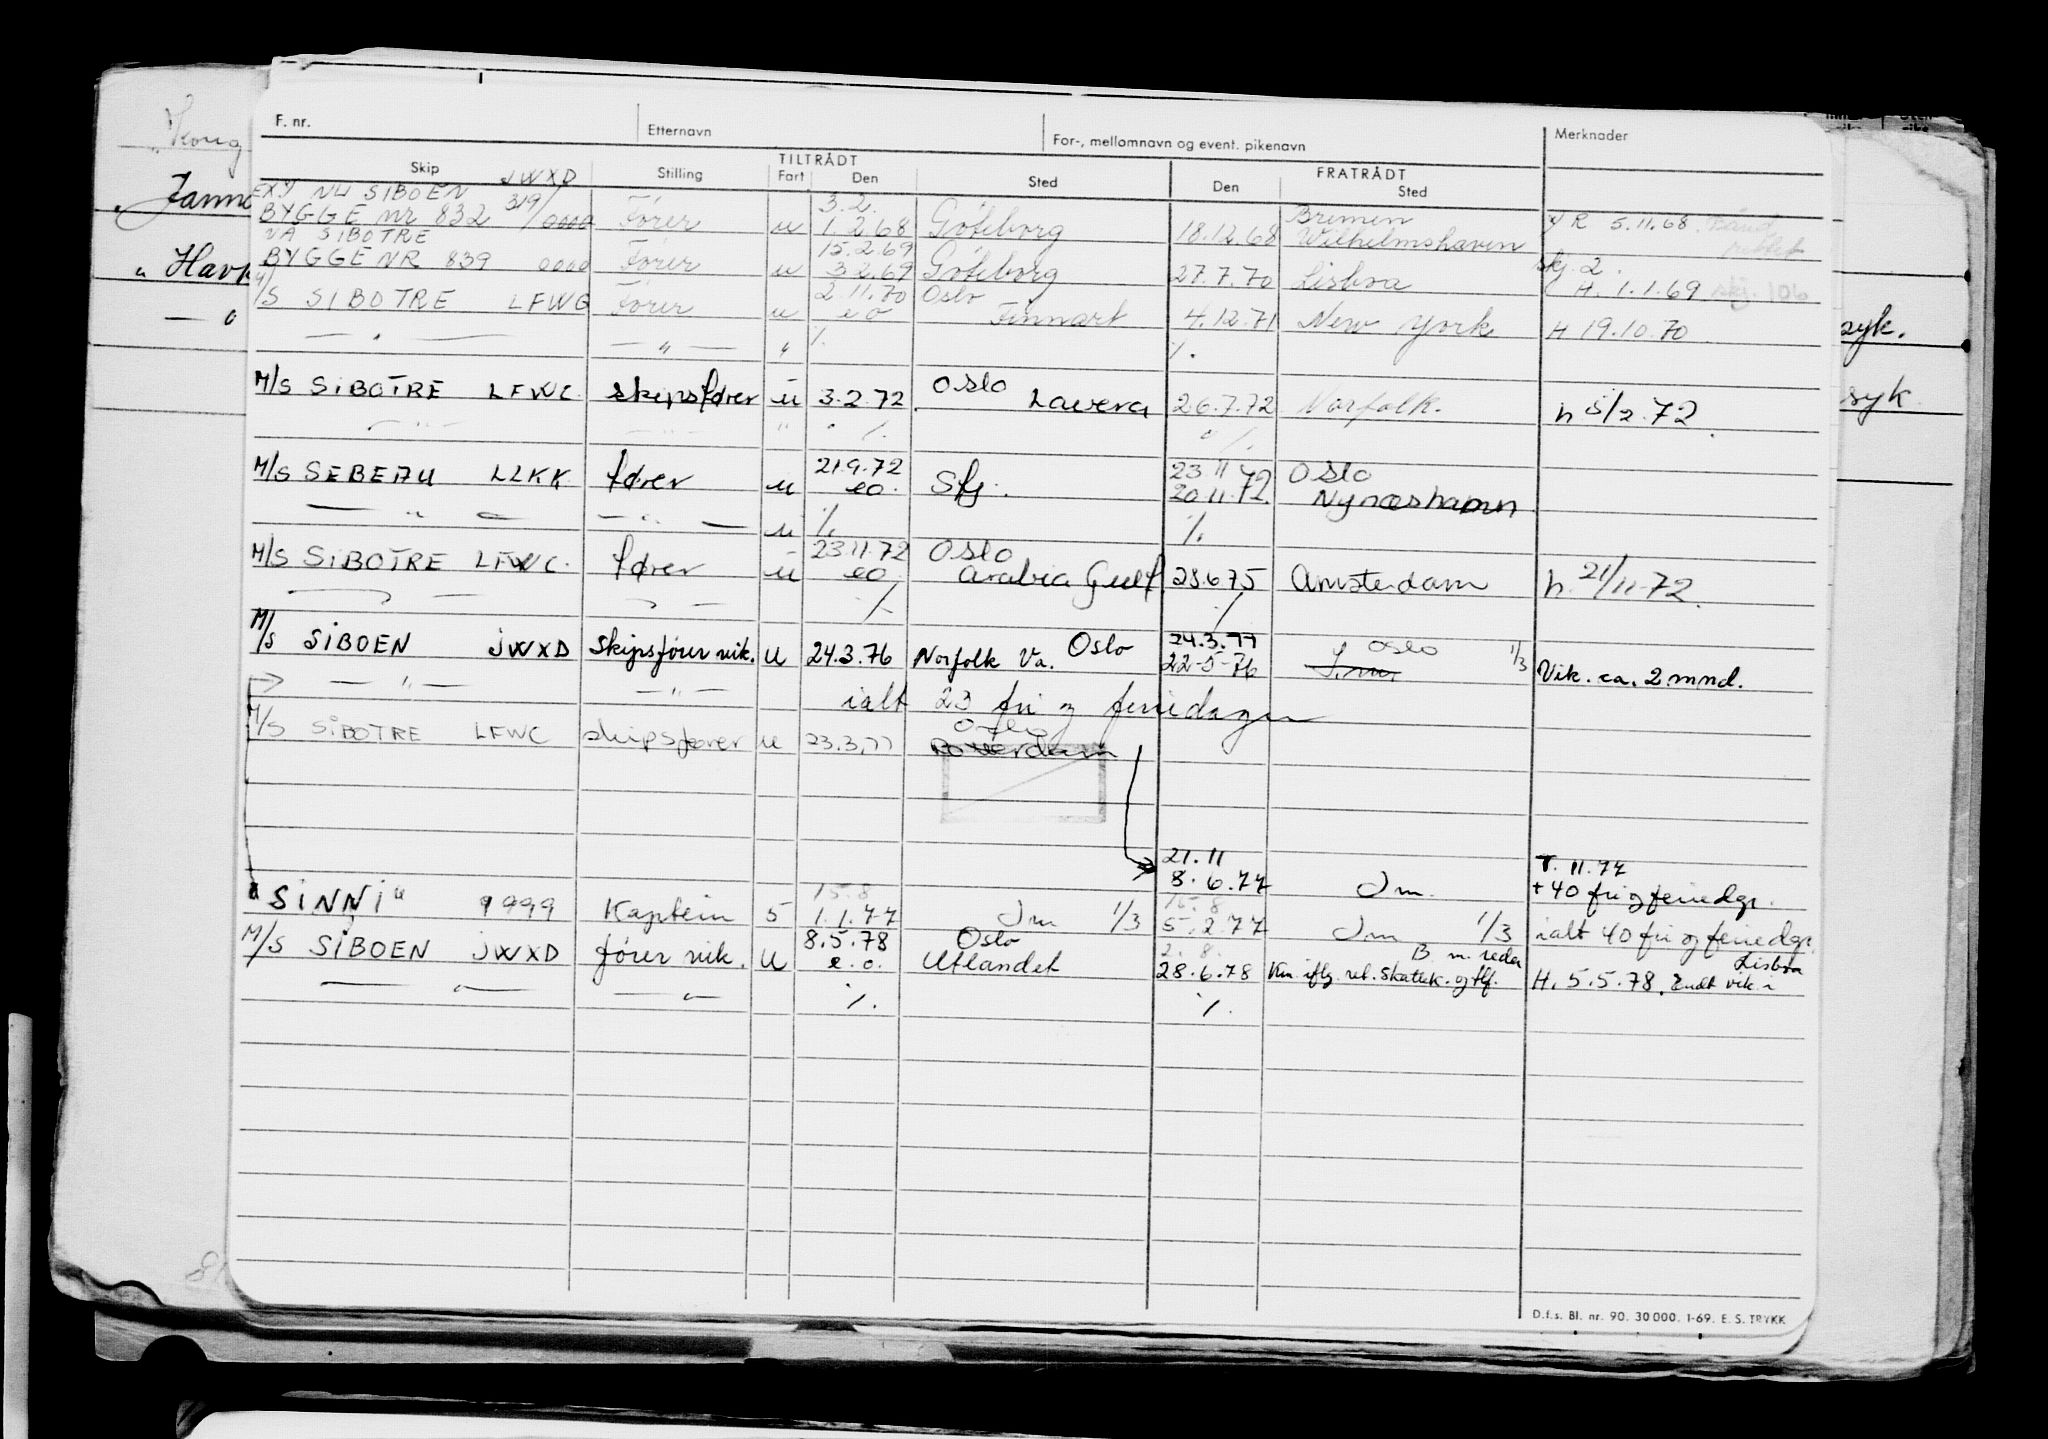 Kong
F. nr. Etternavn For-, mellomnavn og event. pikenavn Merknader
TILTRÅDT FRATRÅDT
Skip Stilling Fart Den Sted Den Sted
JWXD
NU SIBOEN 319/ 3.2. Bremen
Janna BYGGE nr 832 0000 Fører u 1.2.68 Göteborg 18.12.68 Wilhelmshaven R 5.11.68.
NÅ SIBOTRE 15.2.69
" Havk BYGGE NR 839 0000 Fører u 3.2.69 Göteborg 27.7.70 Lisboa skj. 2. H. 1.1.69 skj. 106
M/S SIBOTRE LFWG Fører u 2.11.70 Oslo
eo Finnart 4.12.71 New York H 19.10.70
— " — — " — " %. %.
syk.
M/S SIBOTRE LFWC. skipsfører u 3.2.72 Oslo Lavera 26.7.72 Norfolk. h 5/2.72.
syk
— " — — " — " " %. " %.
M/S SEBEAU LLKK fører u 21.9.72 23.11.72 Oslo
eo. Sfj. 20.11.72. Nynæshamn
— " — — " — u %. %.
M/S SIBOTRE LFWC. fører u 23.11.72 Oslo
eo. Arabia Gulf 23.6.75 Amsterdam h. 21/11-72.
— — %. %
M/S SIBOEN JWXD Skipsfører vik. u 24.3.76 Norfolk Va. Oslo 24.3.77 Oslo
22-5-76 1/3 Vik. ca. 2 mnd.
— " — — " — ialt 23 fri og feriedager
M/S SIBOTRE LFWC skipsfører u 23.3.77 Oslo
Rotterdam
21.11 T. 11.77
8.6.77 Jm. + 40 fri og feriedgr.
15.8 15.8
"SINNI" 9999 Kaptein S 1.1.77 Jm 1/3 5.2.77 Jm 1/3 ialt 40 fri og feriedgr.
M/S SIBOEN JWXD fører vik. u 8.5.78 Oslo 2.8. B. m. reder Lisboa
e.o. Utlandet 28.6.78 Km iflg. rel. skattek. og tlf. H. 5.5.78. Endt vik.
— " — — " — %. %.
D.f.s. Bl. nr. 90. 30 000. 1-69. E. S. TRYKK